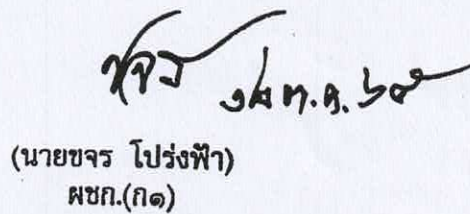 ขจร ๑๒ ต.ค. ๖๕
(นายขจร โปร่งฟ้า)
ผชก.(ก๑)